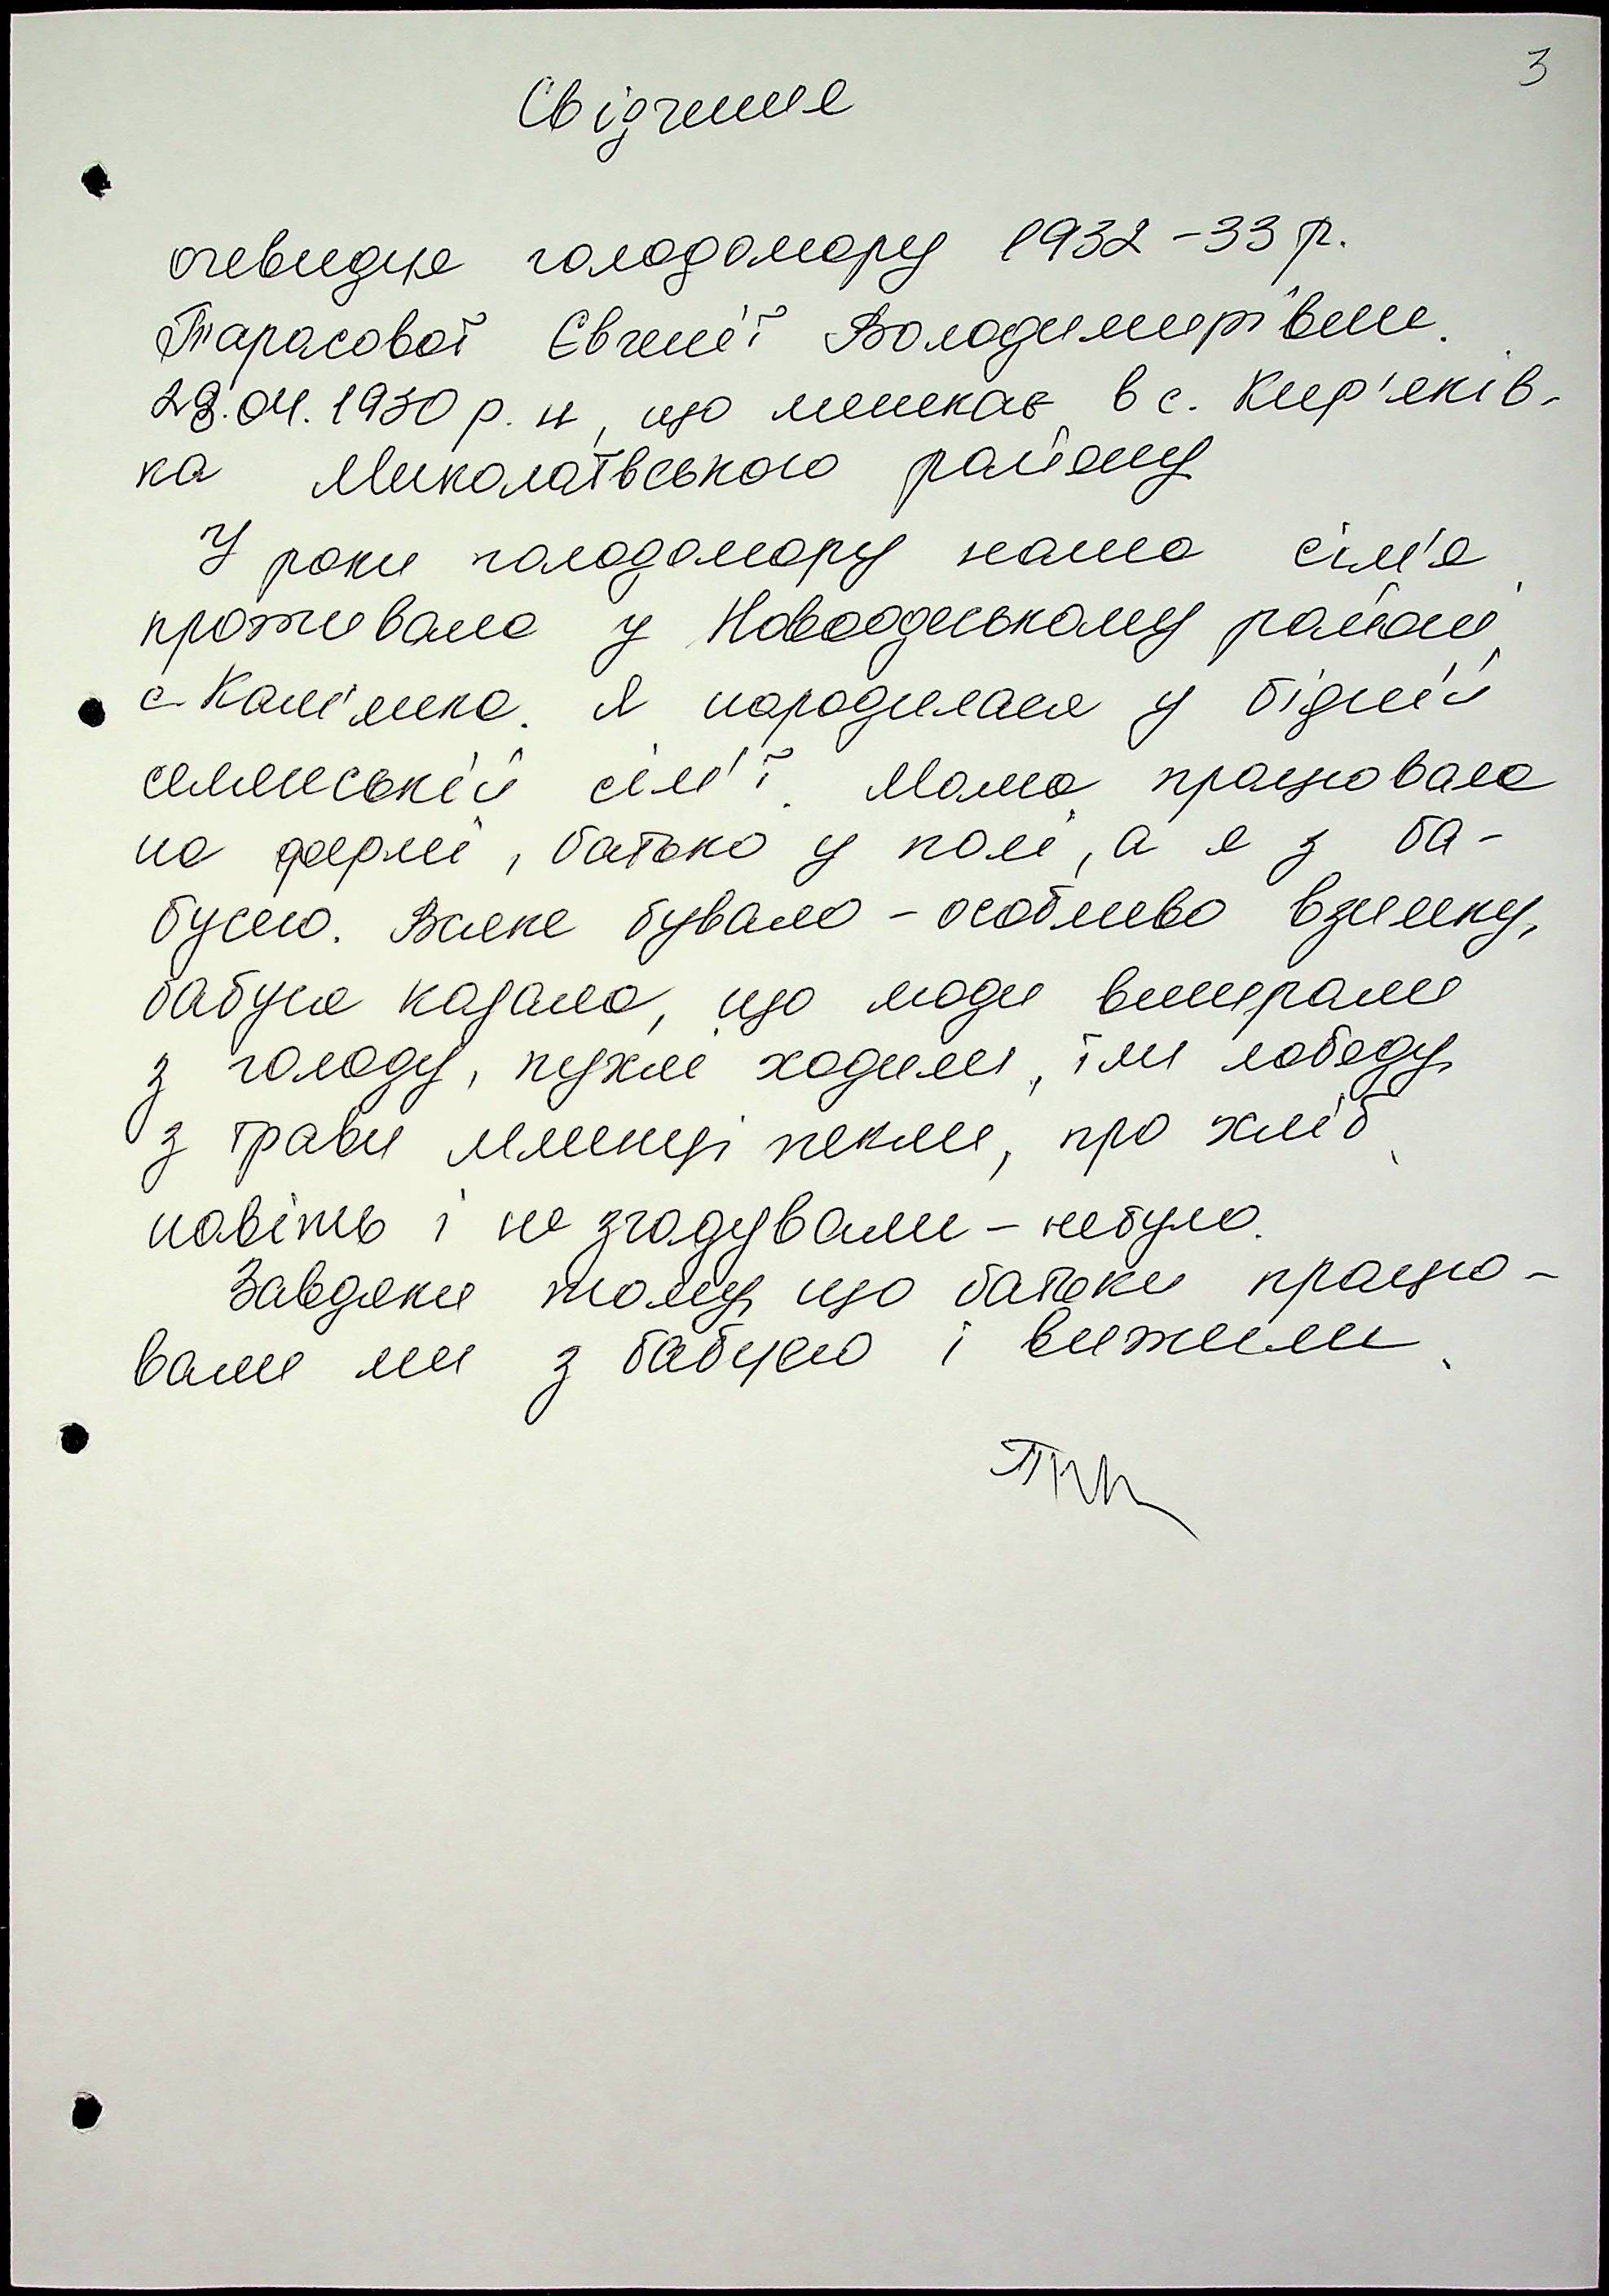 3
Свідчення
очевидця голодомору 1932-33 р.
Тарасової Євгенії Володимирівни.
28.04.1930 р. н, що мешкає в с. Кир'яків-
ка Миколаївського району
У роки голодомору наша сім'я
проживала у Новоодеському районі,
с. Кам'янка. Я народилася у бідній
селянській сім'ї. Мама працювала
на фермі, батько у полі, а я з ба-
бусею. Всяке бувало - особливо взимку,
бабуся казала, що люди вмирали
з голоду, пухлі ходили, їли лободу,
з трави млинці пекли, про хліб
навіть і не згадували - небуло.
Завдяки тому, що батьки працю-
вали ми з бабусею і вижили.